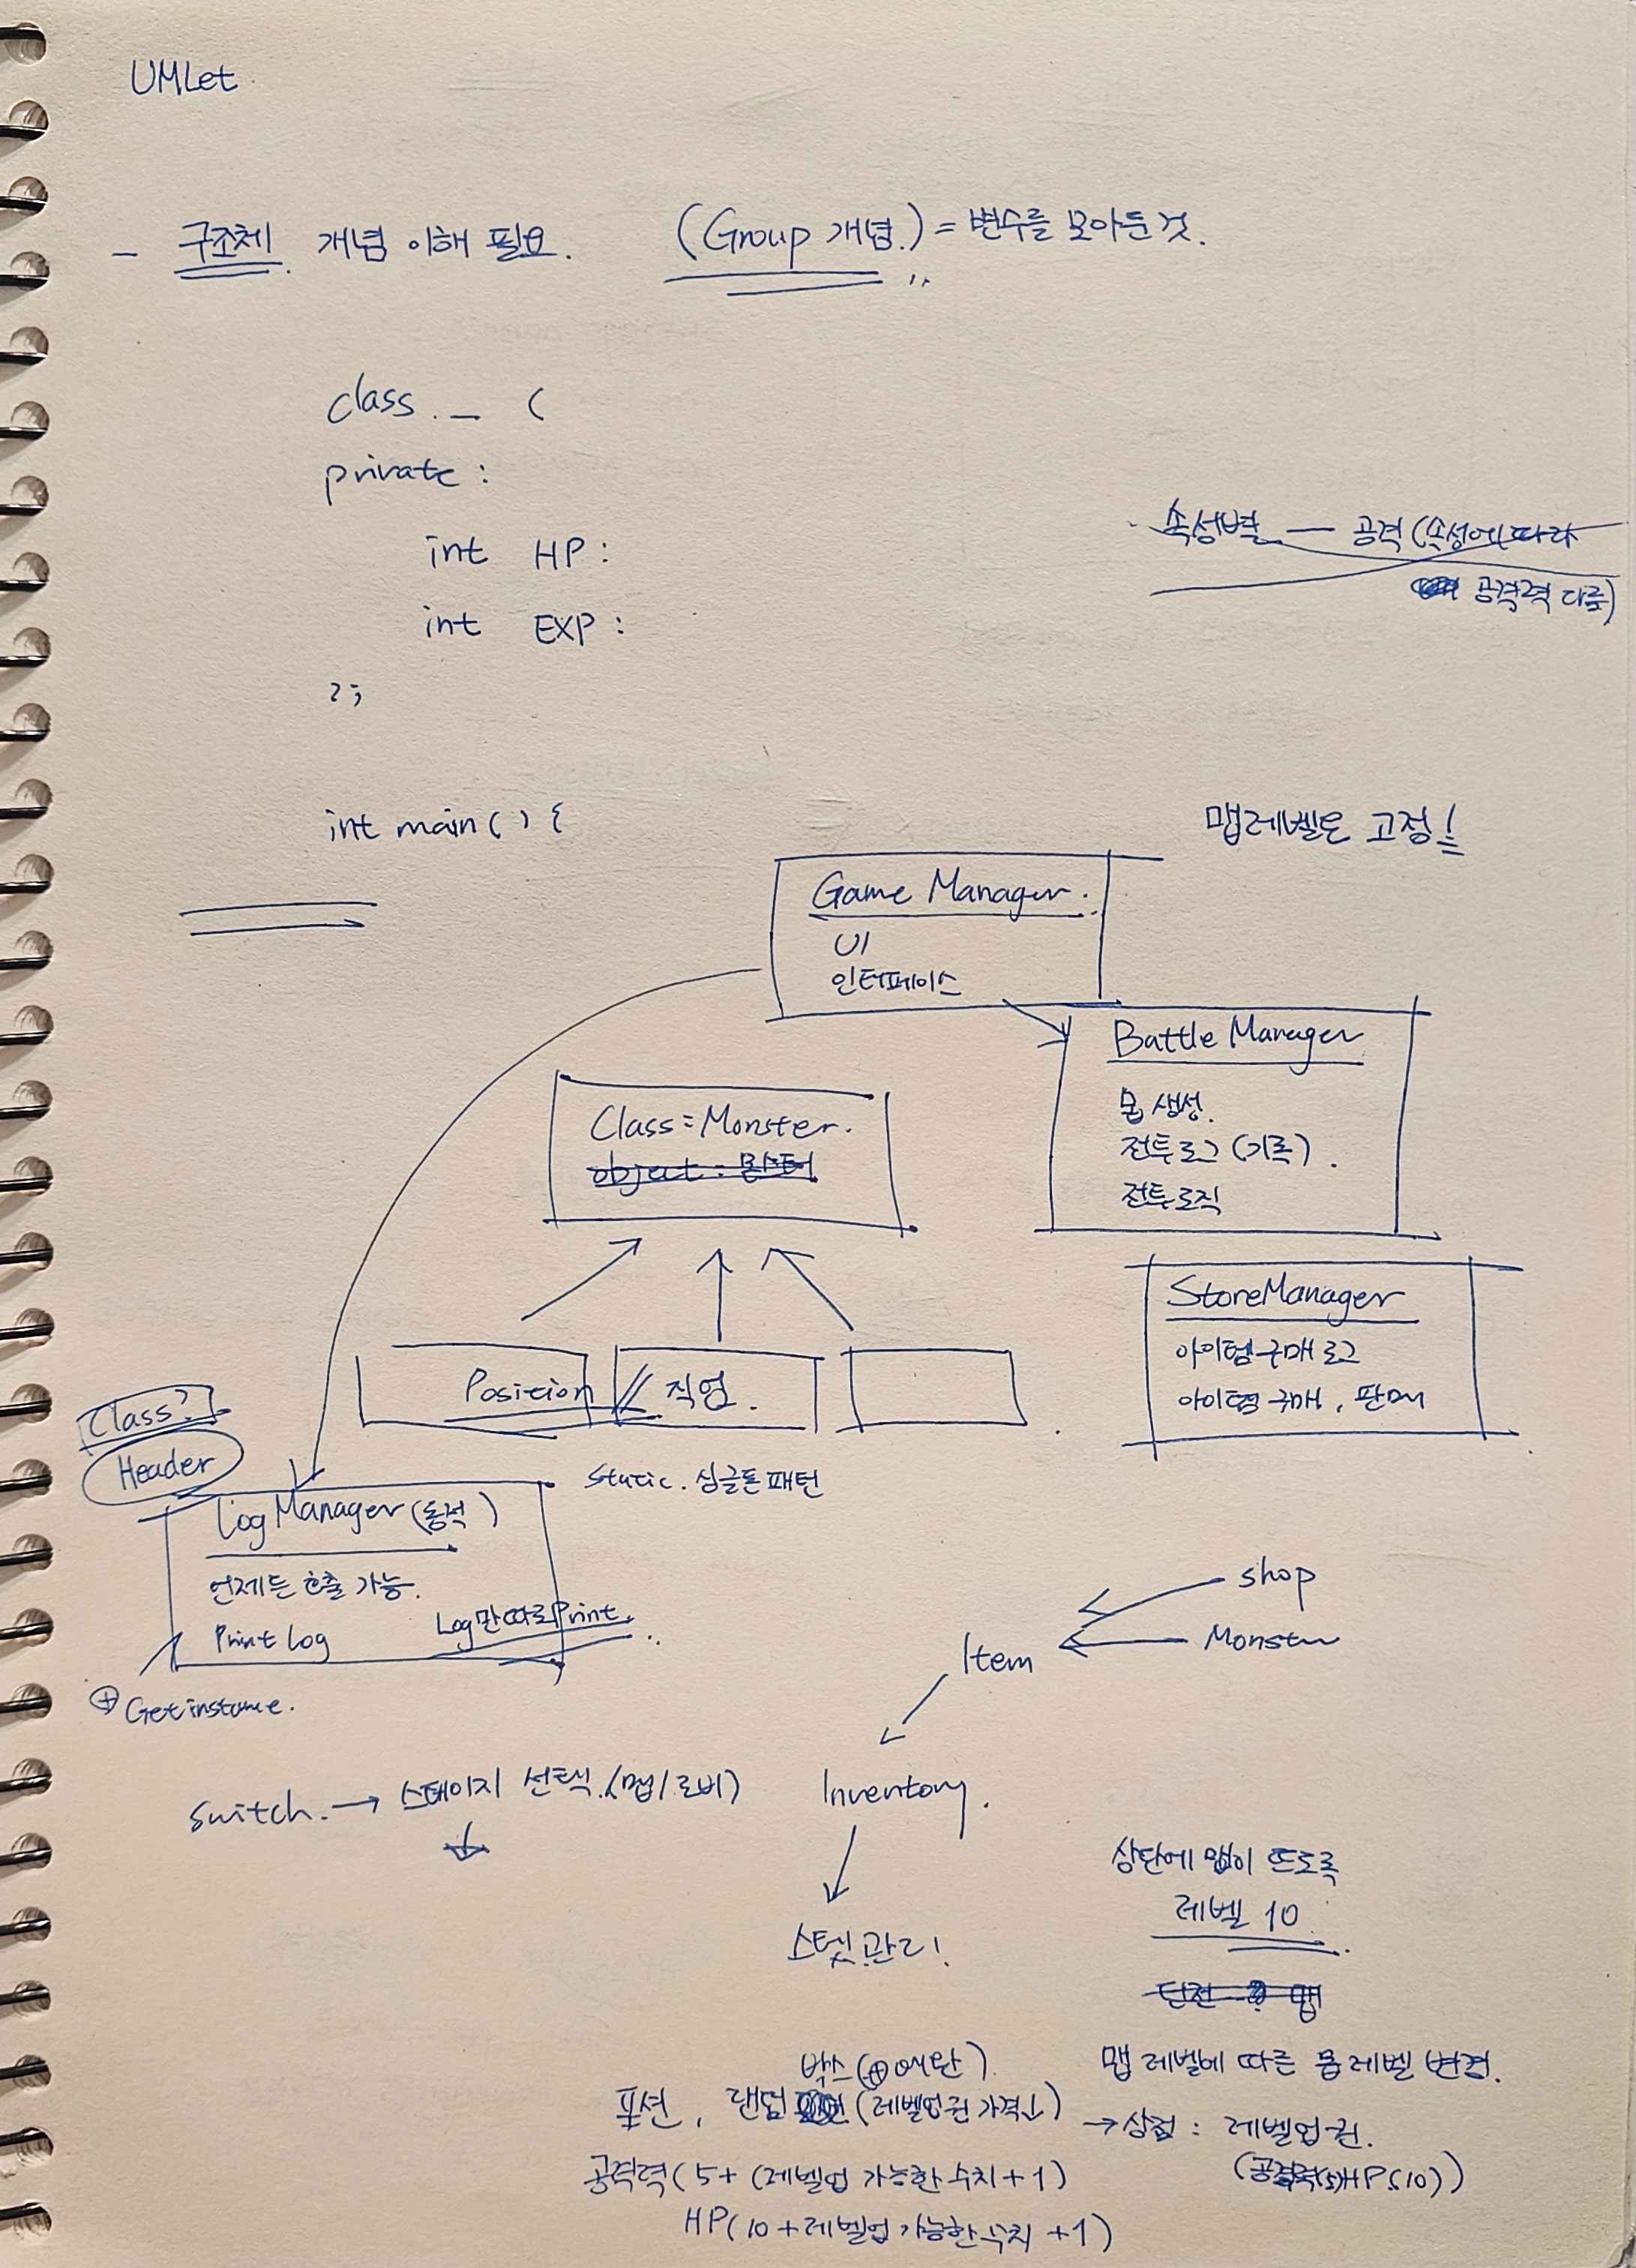 UMLet
- 구조체 개념 이해 필요. (Group 개념.) = 변수를 모아둔 것.
class _ (
private :
int HP :
int EXP :
};
속성별 — 공격 (속성에 따라
공격력 다름)
int main ( ) {
맵레벨은 고정!
Game Manager.
UI
인터페이스
Battle Manager
몹 생성.
전투로그 (기록).
전투로직
Class = Monster.
object : 몬스터
StoreManager
아이템 구매 로그
아이템 구매, 판매
Position
직업.
Class?
Header
Static. 싱글톤 패턴
Log Manager (동적)
언제든 호출 가능.
Print Log
Log만 따로 Print.
⊕ Getinstance.
shop
Monster
Item
Inventory.
스텟 관리!
switch. → 스테이지 선택. (맵/로비)
상단에 맵이 뜨도록
레벨 10
맵 레벨에 따른 몹 레벨 변경.
→ 상점 : 레벨업권.
(공격력(5)HP(10))
박스 (⊕ )
포션, 랜덤 (레벨업권 가격↓)
공격력 (5+ (레벨업 가능한 수치 +1)
HP (10 + 레벨업 가능한 수치 +1)